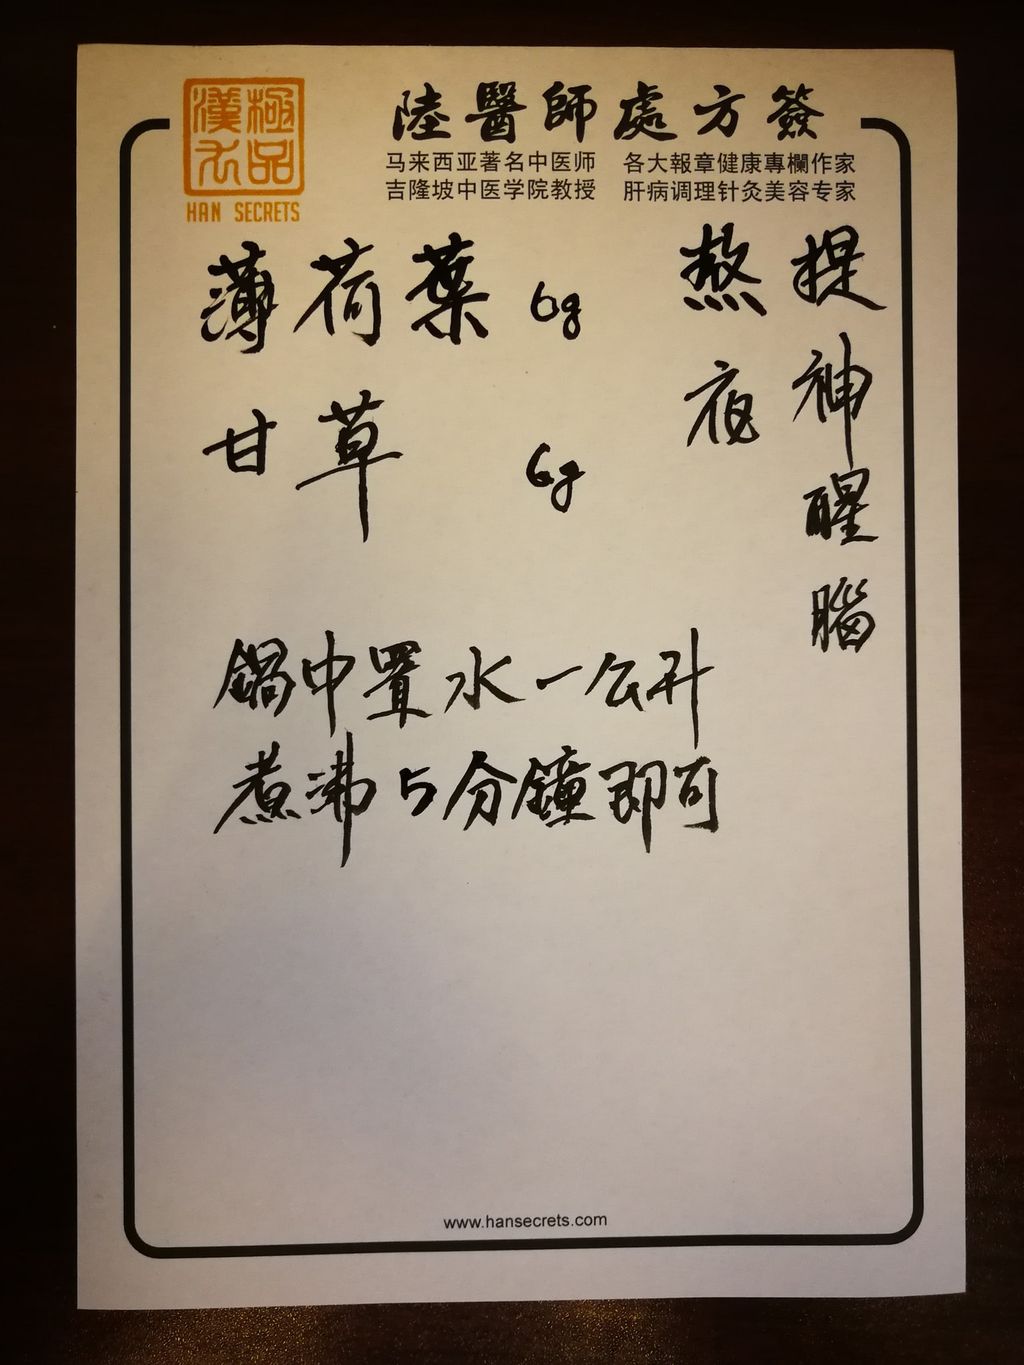 極品
漢方
HAN SECRETS
陸醫師處方簽
马来西亚著名中医师 各大報章健康專欄作家
吉隆坡中医学院教授 肝病调理针灸美容专家
提神醒腦
熬夜
薄荷葉 6g
甘草 6g
鍋中置水一公升
煮沸5分鐘即可
www.hansecrets.com